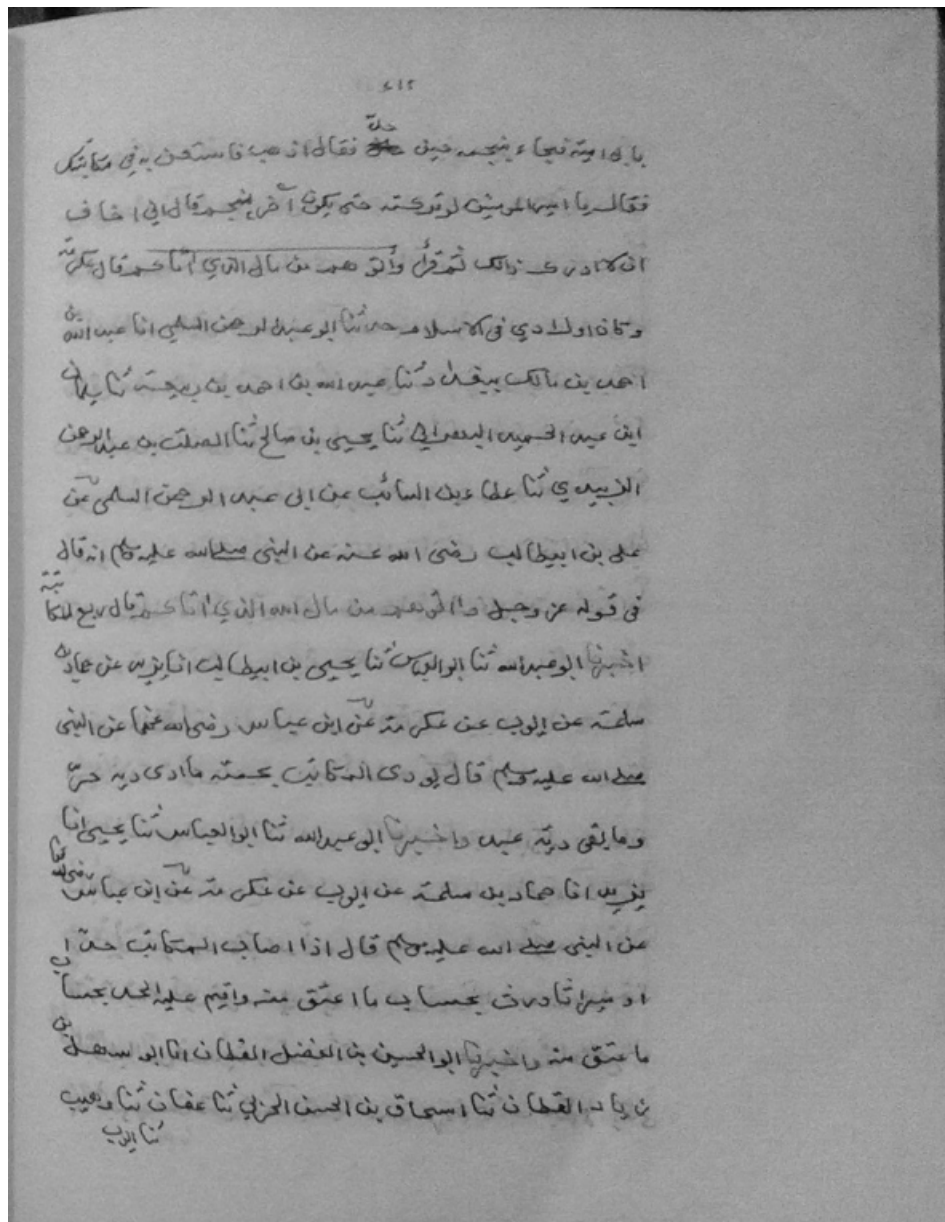 ٤١٢
بابا امية فجاء بنجمه حين حلّ فقال اذهب فاستعن به في مكاتبتك
فقال يا امير المومنين لو تركته حتى يكون آخر نجم قال اني اخاف
ان لا ادرك ذالك ثم قرأ وأتوهم من مال الله الذي أتاكم قال عكرمة
وكان اول ادي في الاسلام حدثنا ابو عبد الرحمن السلمي انا عبد الله بن
احمد بن مالك ببغداد ثنا عبد الله بن احمد بن ثنا سليمان
ابن عبد الحميد البهراني ثنا يحيى بن صالح ثنا الصلت بن عبد الرحمن
الزبيدي ثنا عطاء بن السائب عن ابي عبد الرحمن السلمي عن
علي بن ابيطالب رضى الله عنه عن النبى صلى الله عليه وسلم انه قال
فى قوله عز وجل وأتوهم من مال الله الذي أتاكم قال ربع المكاتبة
اخبرنا ابو عبد الله ثنا ابو العباس ثنا يحيى بن ابيطالب انا يزيد عن حماد بن
سلمة عن ايوب عن عكرمة عن ابن عباس رضى الله عنهما عن النبى
صلى الله عليه وسلم قال يودى المكاتب بحصته ما ادى دية حرّ
وما بقى دية عبد واخبرنا ابو عبد الله ثنا ابو العباس ثنا يحيى انا
يزيد انا حماد بن سلمة عن ايوب عن عكرمة عن ابن عباس رضى الله عنهما
عن النبى صلى الله عليه وسلم قال اذا اصاب المكاتب حدّا
او ميراثا ورث بحساب ما اعتق منه واقيم عليه الحد بحساب
ما عتق منه واخبرنا ابو الحسين بن الفضل القطان انا ابو سهل بن
زياد القطان ثنا اسحاق بن الحسن الحربي ثنا عفان ثنا وهيب
ثنا ايوب